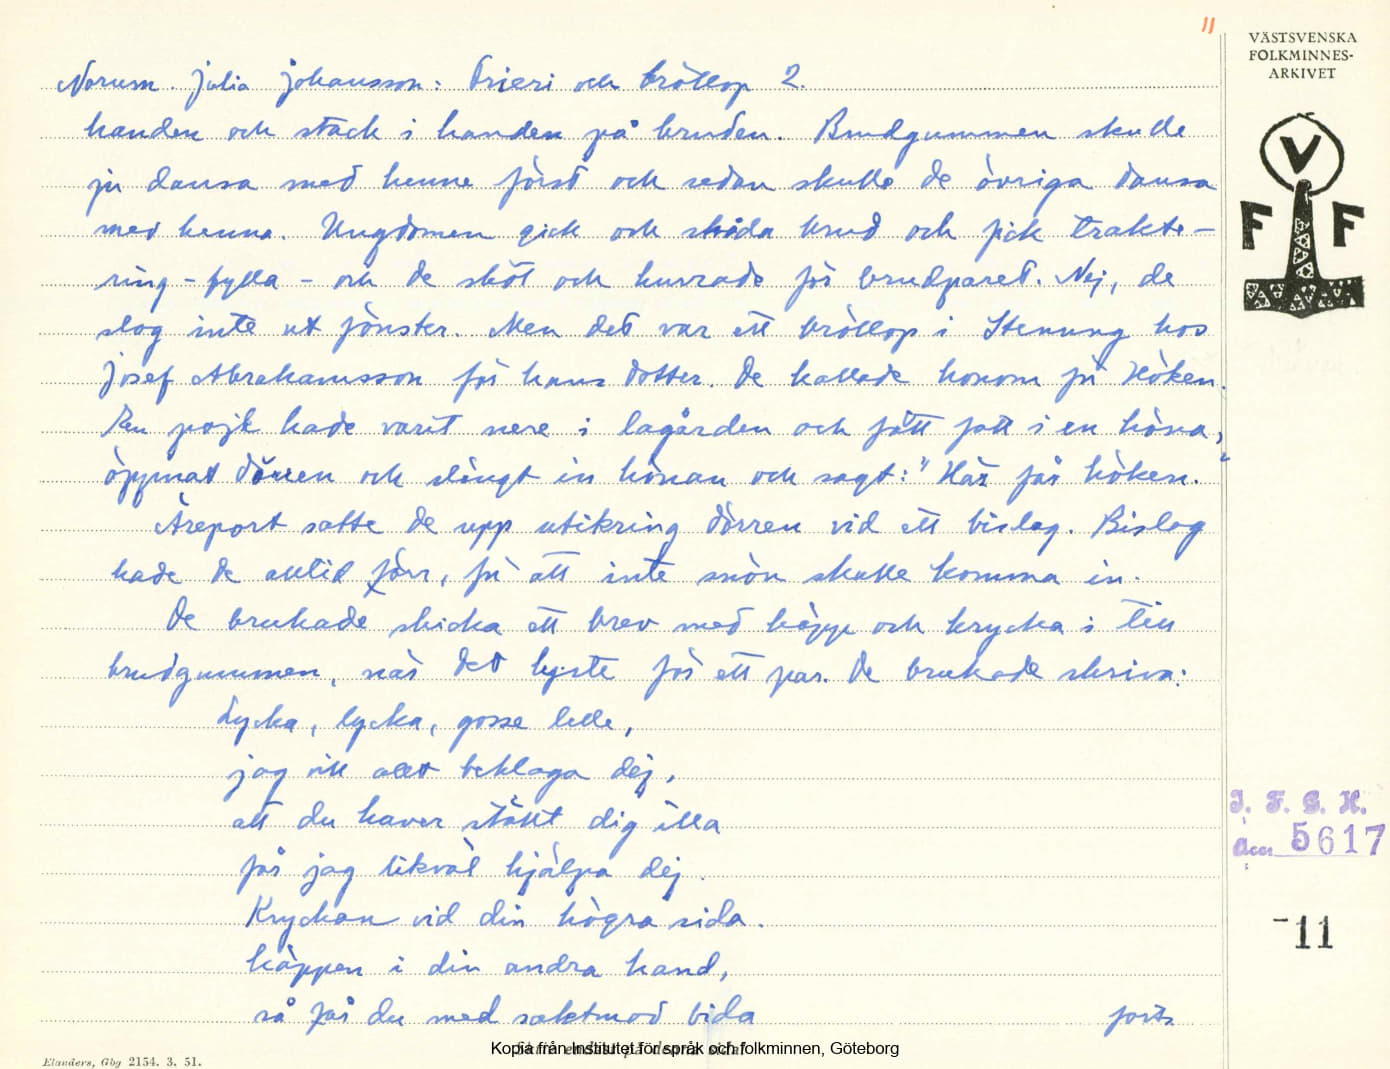 11
VÄSTSVENSKA
FOLKMINNES-
ARKIVET
V
F F
Norum. Julia Johansson: Frieri och bröllop 2.
handen och stack i handen på bruden. Brudgummen skulle
ju dansa med henne först och sedan skulle de övriga dansa
med henne. Ungdomen gick och skåda brud och fick trakte-
ring - fylla - och de sköt och hurrade för brudparet. Nej, de
slog inte ut fönster. Men det var ett bröllop i Stenung hos
Josef Abrahamsson för hans dotter. De kallade honom för Höken.
En pojk hade varit nere i lagården och fått fatt i en höna,
öppnat dörren och slängt in hönan och sagt: "Här får höken."
Äreport satte de upp utikring dörren vid ett bislag. Bislag
hade de alltid förr, för att inte snön skulle komma in.
De brukade skicka ett brev med käpp och krycka i till
brudgummen, när det lyste för ett par. De brukade skriva:
Lycka, lycka, gosse lille,
jag vill allt beklaga dej,
att du haver stött dig illa
får jag likväl hjälpa dej.
Kryckan vid din högra sida.
käppen i din andra hand,
så får du med saktmod bida
forts
I. F. G. H.
Acc. 5617
-11
Kopia från Institutet för språk och folkminnen, Göteborg
Elanders, Gbg 2154. 3. 51.